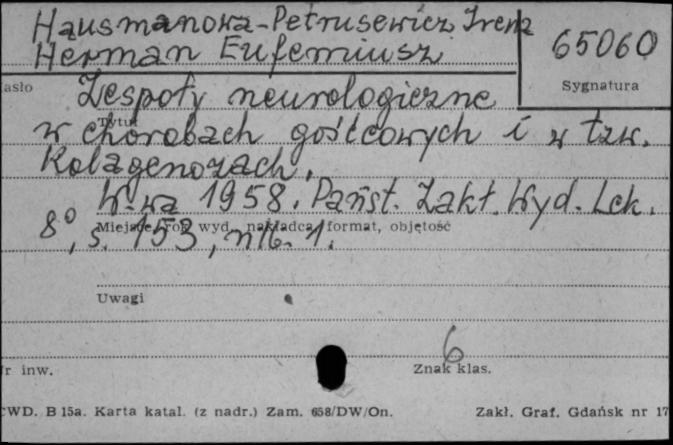 Hausmanowa-Petrusewicz Irena
Herman Eufemiusz
65060
Sygnatura
asło
Zespoły neurologiczne
Tytuł
w chorobach gośćcowych i w tzw.
Kolagenozach.
W-wa 1958. Państ. Zakł. Wyd. Lek.
8°, s. 153, nlb. 1.
Miejsce, rok wyd., nakładca, format, objętość
Uwagi
6
r inw.
Znak klas.
CWD. B 15a. Karta katal. (z nadr.) Zam. 658/DW/On.
Zakł. Graf. Gdańsk nr 17